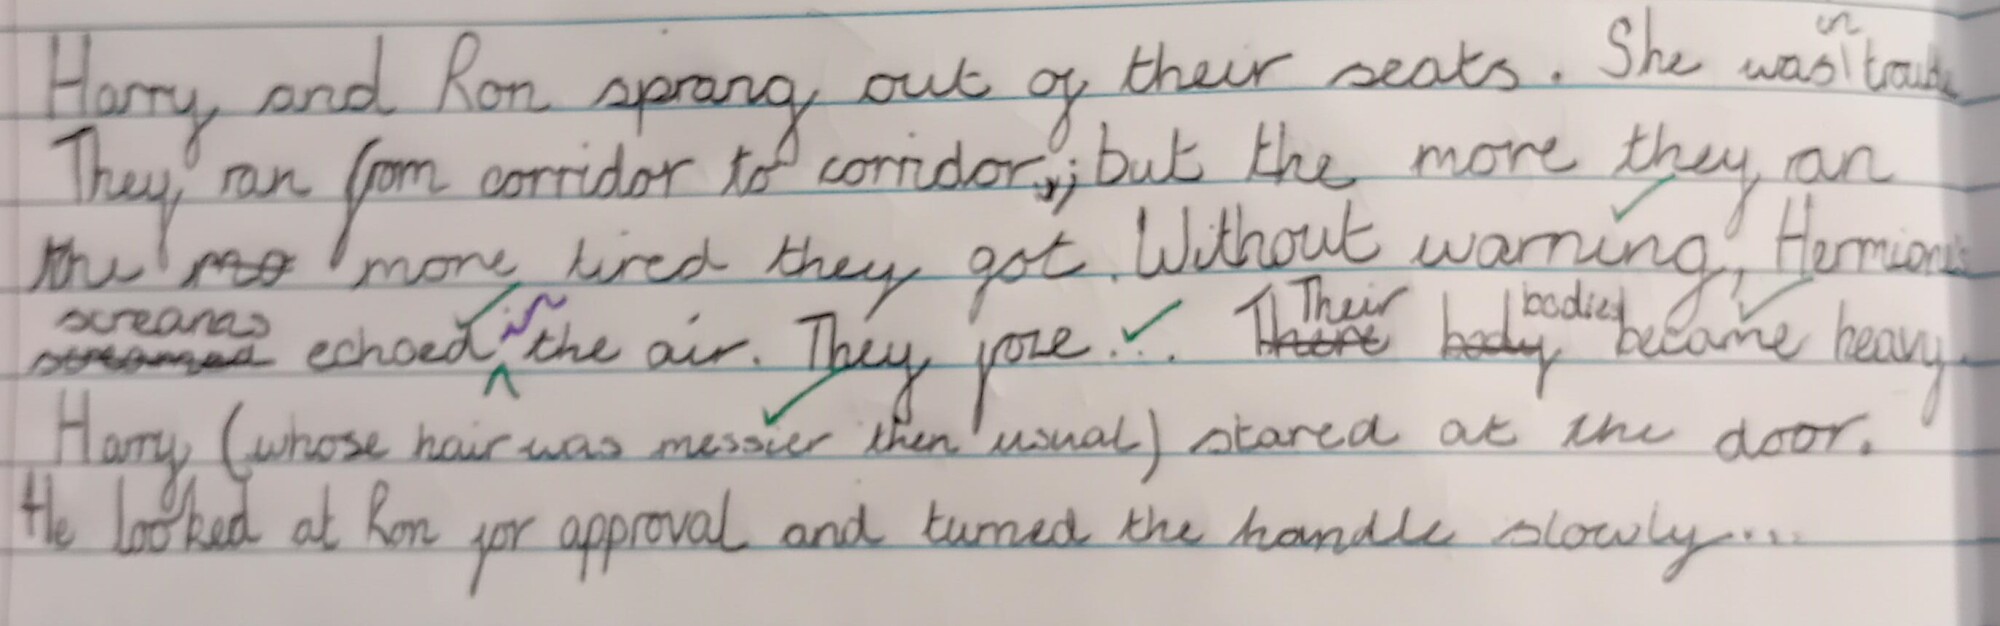 Harry and Ron sprang out of their seats. She was in trouble
They ran from corridor to corridor; but the more they an
the more tired they got. Without warning, Hermione's
screams echoed in the air. They froze... Their bodies became heavy.
Harry (whose hair was messier then usual) stared at the door.
He looked at Ron for approval and turned the handle slowly...